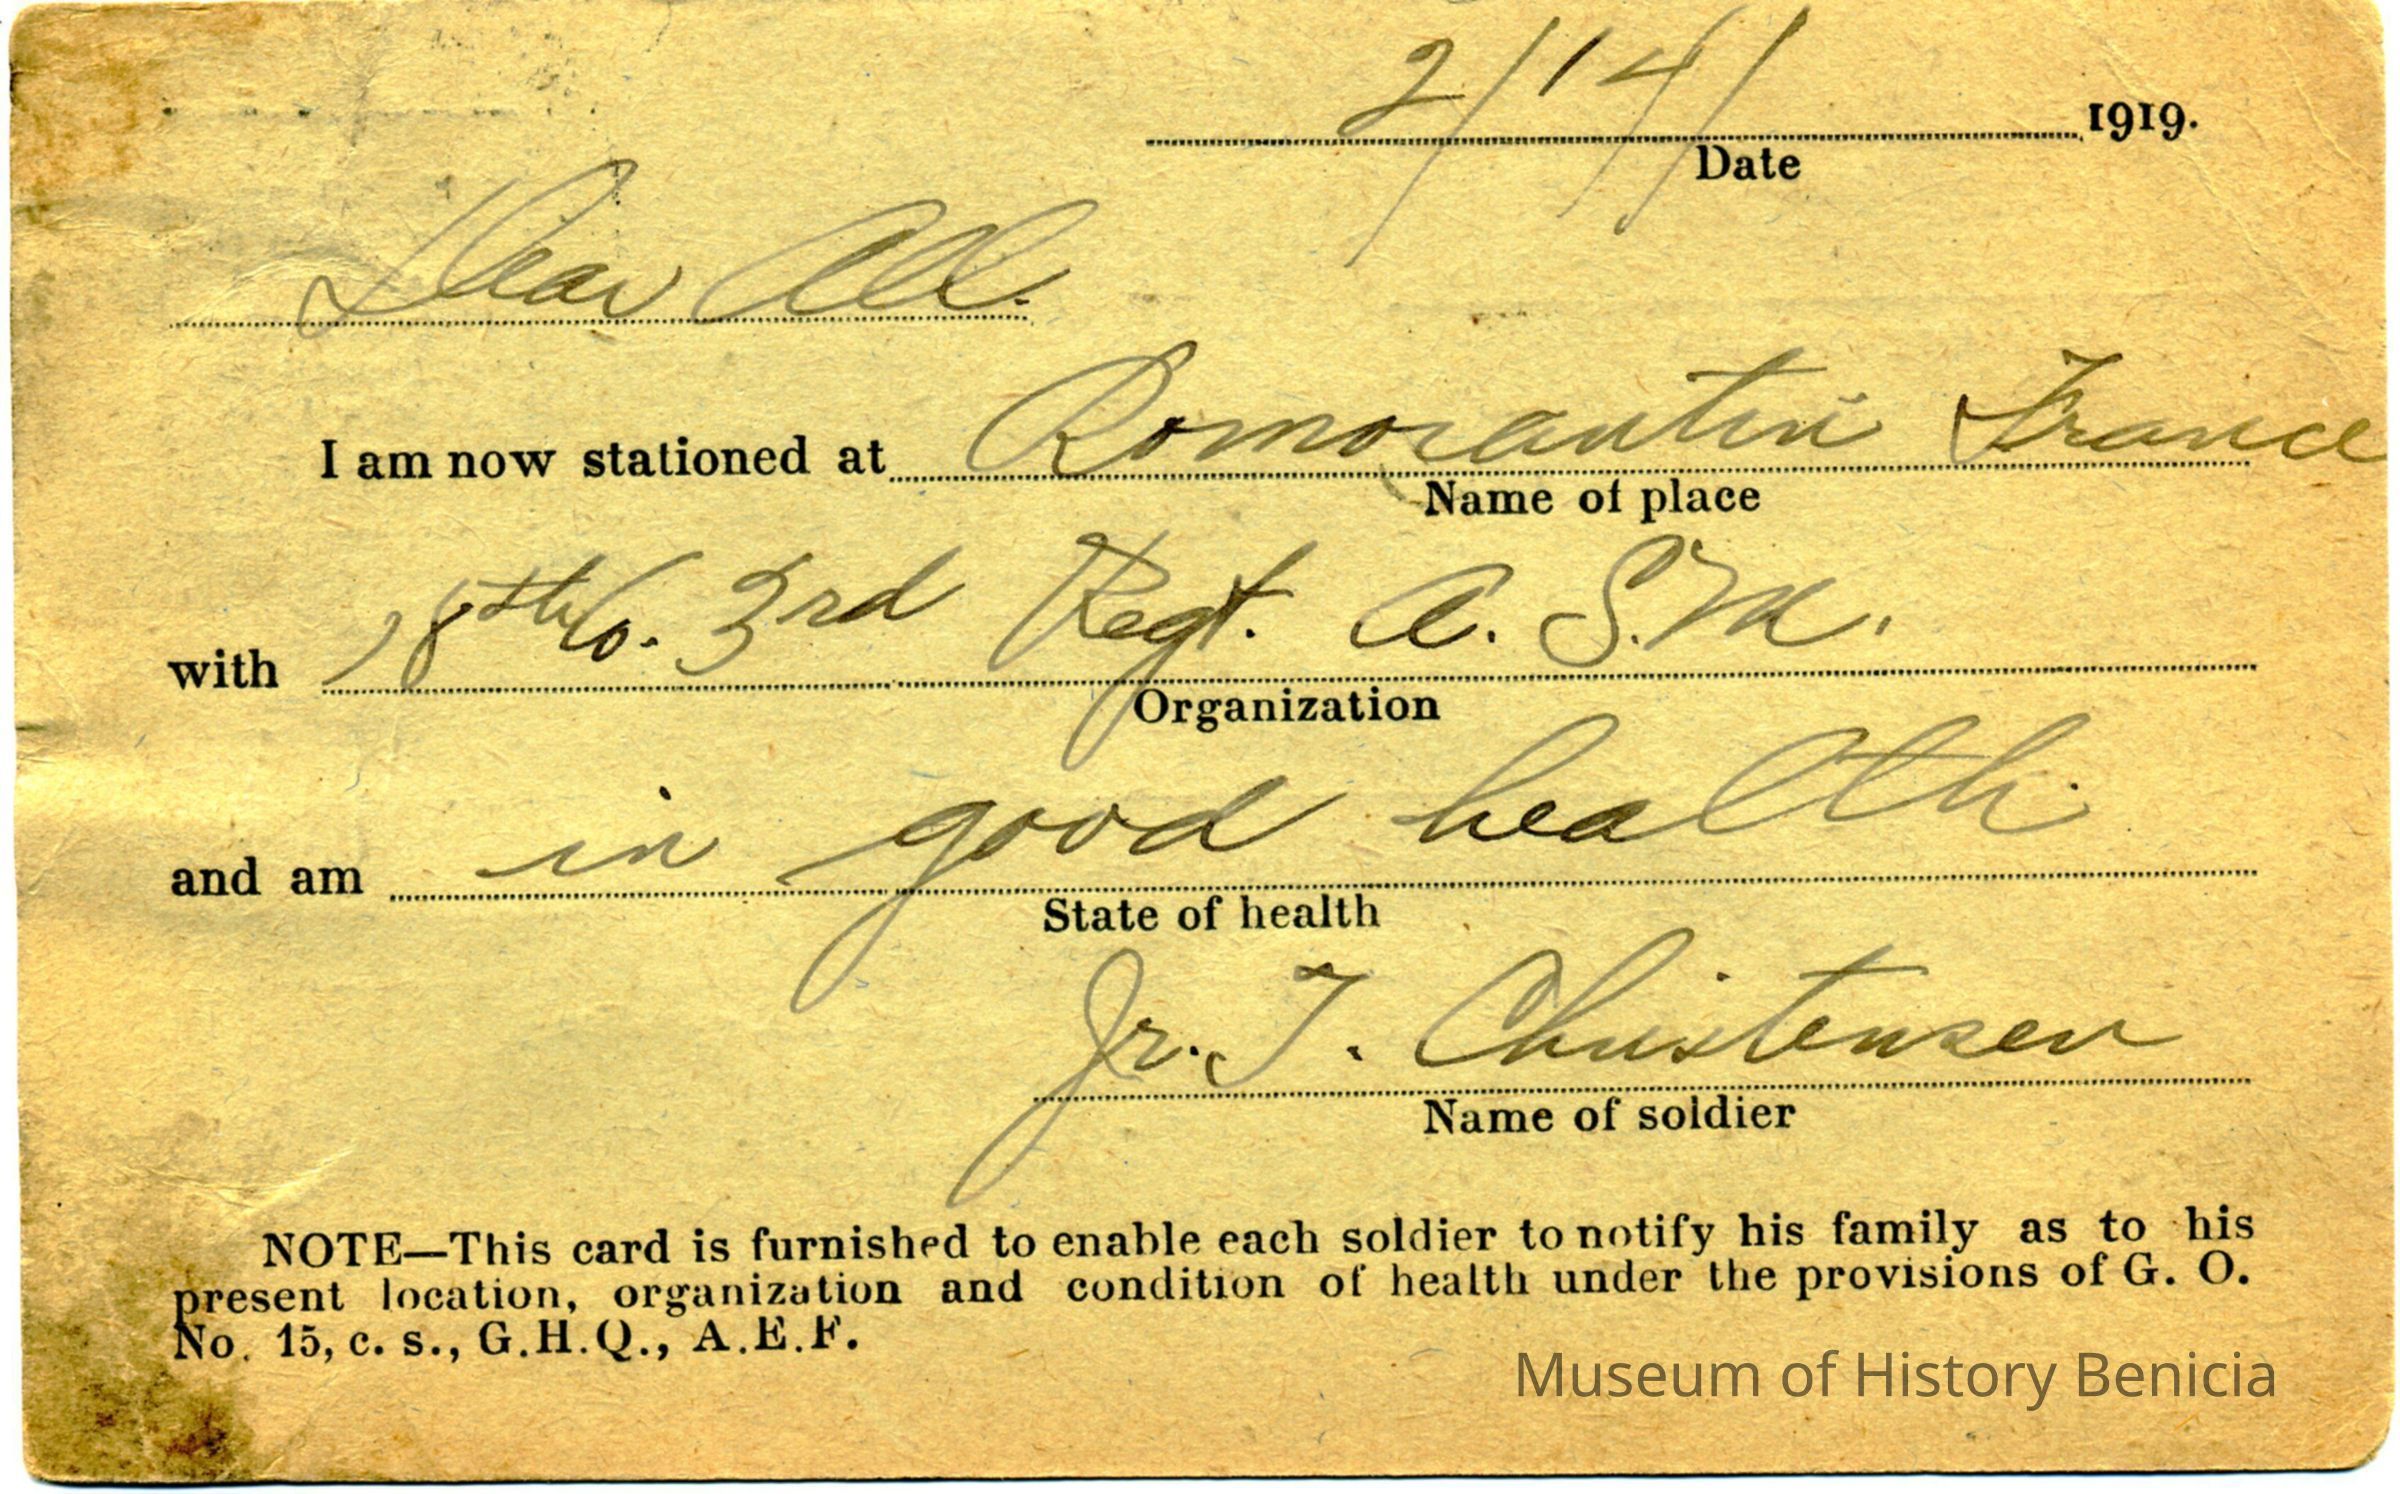 2/14/ 1919.
Date
Dear All.
I am now stationed at Romorantin France
Name of place
with 18th Co. 3rd Regt. A. S. M.
Organization
and am in good health.
State of health
Jr. T. Christensen
Name of soldier
NOTE—This card is furnished to enable each soldier to notify his family as to his
present location, organization and condition of health under the provisions of G. O.
No. 15, c. s., G.H.Q., A.E.F.
Museum of History Benicia